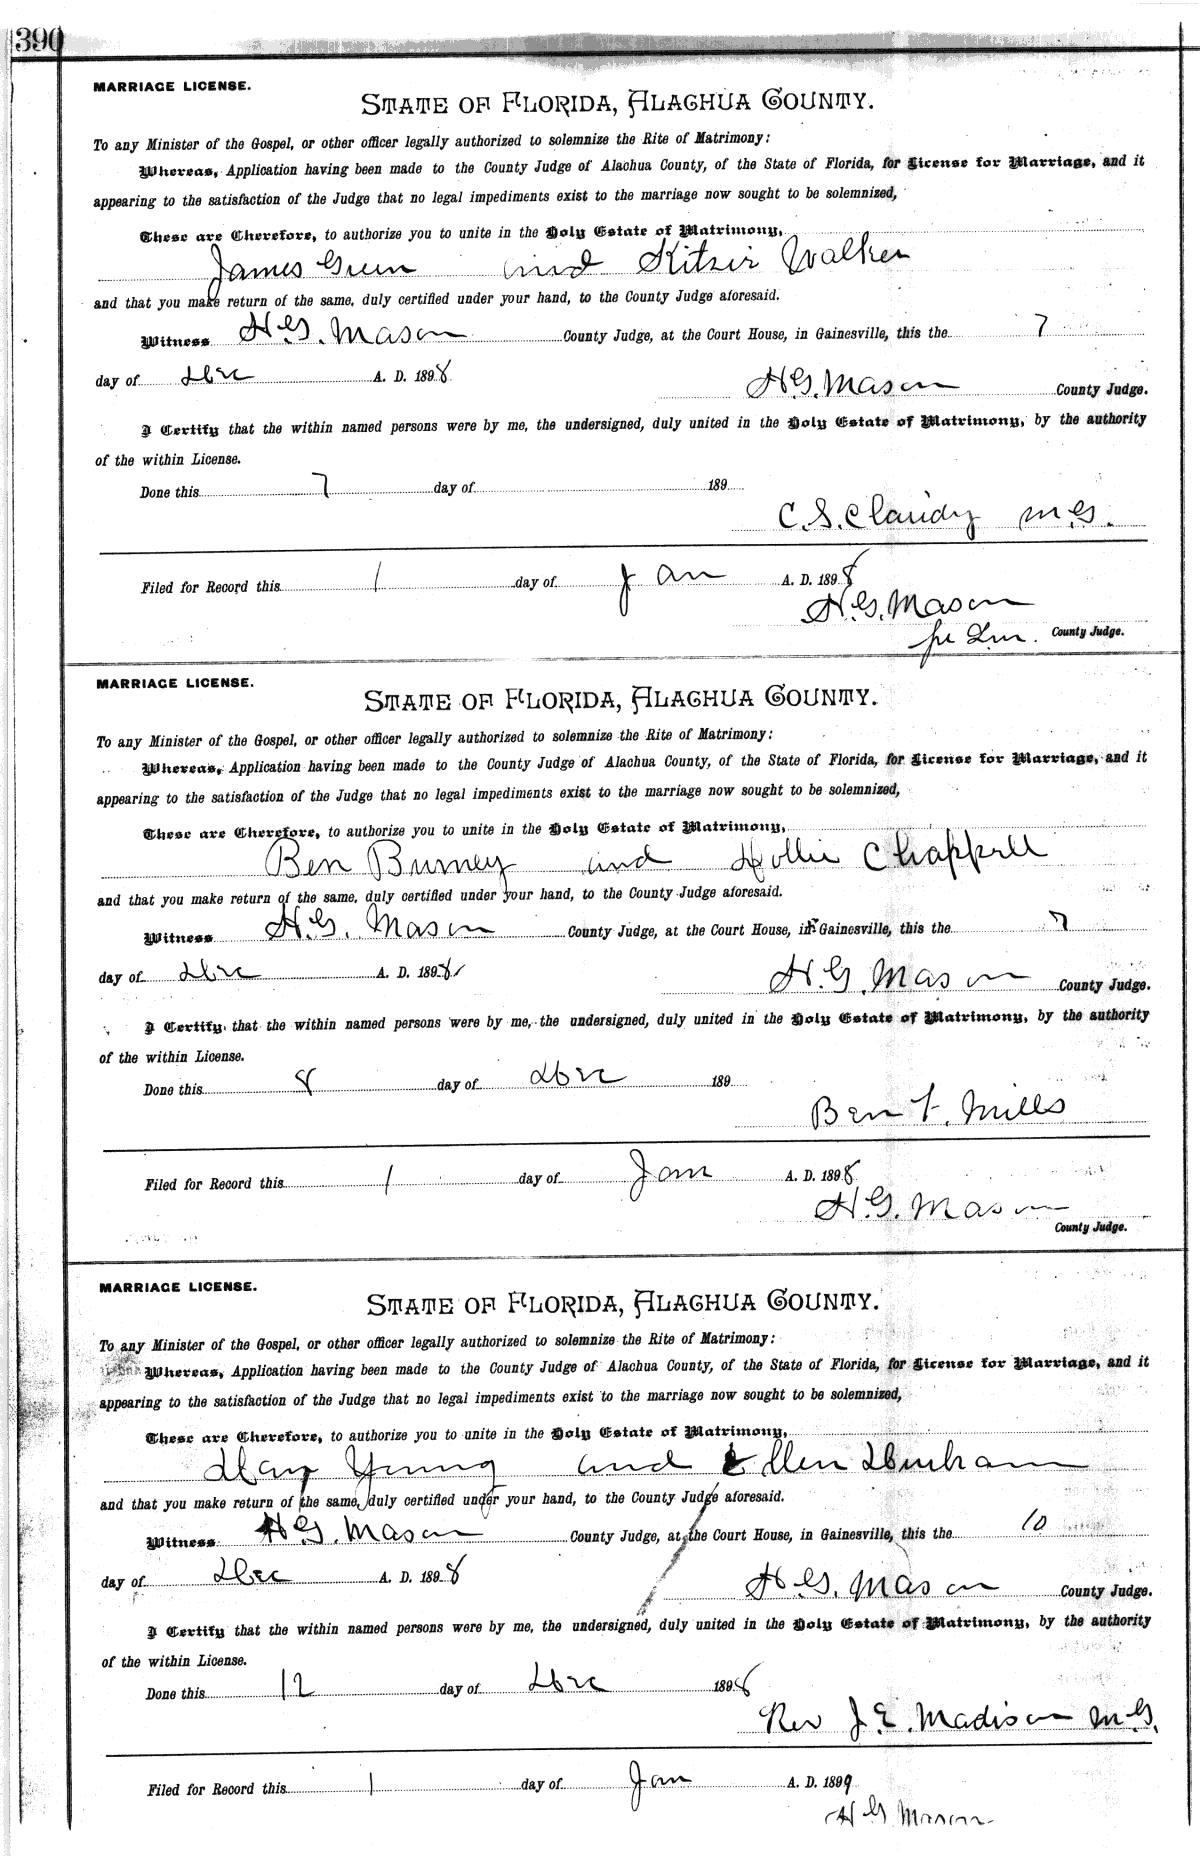 390
MARRIAGE LICENSE.
STATE OF FLORIDA, ALACHUA COUNTY.
To any Minister of the Gospel, or other officer legally authorized to solemnize the Rite of Matrimony:
Whereas, Application having been made to the County Judge of Alachua County, of the State of Florida, for License for Marriage, and it
appearing to the satisfaction of the Judge that no legal impediments exist to the marriage now sought to be solemnized,
These are Therefore, to authorize you to unite in the Holy Estate of Matrimony,
James Green and Kitsir Walker
and that you make return of the same, duly certified under your hand, to the County Judge aforesaid.
Witness H.G. Mason County Judge, at the Court House, in Gainesville, this the 7
day of Dec A. D. 1898
H.G. Mason County Judge.
I Certify that the within named persons were by me, the undersigned, duly united in the Holy Estate of Matrimony, by the authority
of the within License.
Done this 7 day of 189
C. S. Claridy M.G.
Filed for Record this 1 day of Jan A. D. 1898
H.G. Mason
County Judge.
MARRIAGE LICENSE.
STATE OF FLORIDA, ALACHUA COUNTY.
To any Minister of the Gospel, or other officer legally authorized to solemnize the Rite of Matrimony:
Whereas, Application having been made to the County Judge of Alachua County, of the State of Florida, for License for Marriage, and it
appearing to the satisfaction of the Judge that no legal impediments exist to the marriage now sought to be solemnized,
These are Therefore, to authorize you to unite in the Holy Estate of Matrimony,
Ben Burney and Hollie Chappell
and that you make return of the same, duly certified under your hand, to the County Judge aforesaid.
Witness H.G. Mason County Judge, at the Court House, in Gainesville, this the 7
day of Dec A. D. 1898
H.G. Mason County Judge.
I Certify that the within named persons were by me, the undersigned, duly united in the Holy Estate of Matrimony, by the authority
of the within License.
Done this 8 day of Dec 189
Ben F. Mills
Filed for Record this 1 day of Jan A. D. 1898
H.G. Mason
County Judge.
MARRIAGE LICENSE.
STATE OF FLORIDA, ALACHUA COUNTY.
To any Minister of the Gospel, or other officer legally authorized to solemnize the Rite of Matrimony:
Whereas, Application having been made to the County Judge of Alachua County, of the State of Florida, for License for Marriage, and it
appearing to the satisfaction of the Judge that no legal impediments exist to the marriage now sought to be solemnized,
These are Therefore, to authorize you to unite in the Holy Estate of Matrimony,
Young and Ellen Durham
and that you make return of the same, duly certified under your hand, to the County Judge aforesaid.
Witness H.G. Mason County Judge, at the Court House, in Gainesville, this the 10
day of Dec A. D. 1898
H.G. Mason County Judge.
I Certify that the within named persons were by me, the undersigned, duly united in the Holy Estate of Matrimony, by the authority
of the within License.
Done this 12 day of Dec 1898
Rev J. E. Madison M.G.
Filed for Record this 1 day of Jan A. D. 1899
H G Mason